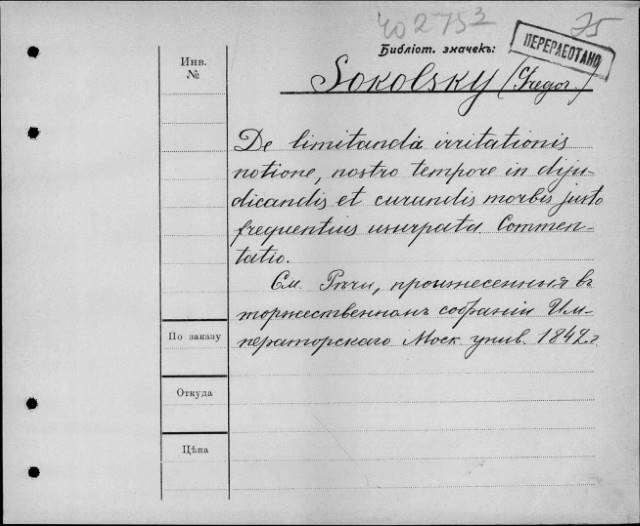 402753
75
Библіот. значекъ:
ПЕРЕРАБОТАНО
Инв.
№
Sokolsky (Gregor.)
De limitanda irritationis
notione, nostro tempore in diju-
dicandis et curandis morbis justo
frequentius usurpata. Commen-
tatio.
См. Рѣчи, произнесенныя въ
торжественномъ собраніи Им-
ператорскаго Моск. унив. 1842 г.
По заказу
Откуда
Цѣна